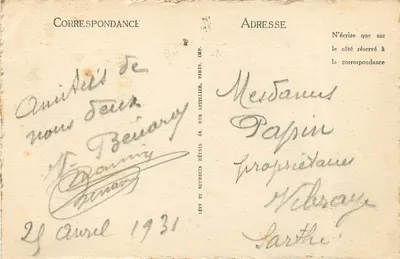 CORRESPONDANCE
Amitiés de
nous deux
Bénard
25 avril 1931
LÉVY ET NEURDEIN RÉUNIS, 44, RUE LETELLIER, PARIS, IMP.
ADRESSE
N'écrire que sur
le côté réservé à
la correspondance
Mesdames
Papin
propriétaires
Vibraye
Sarthe